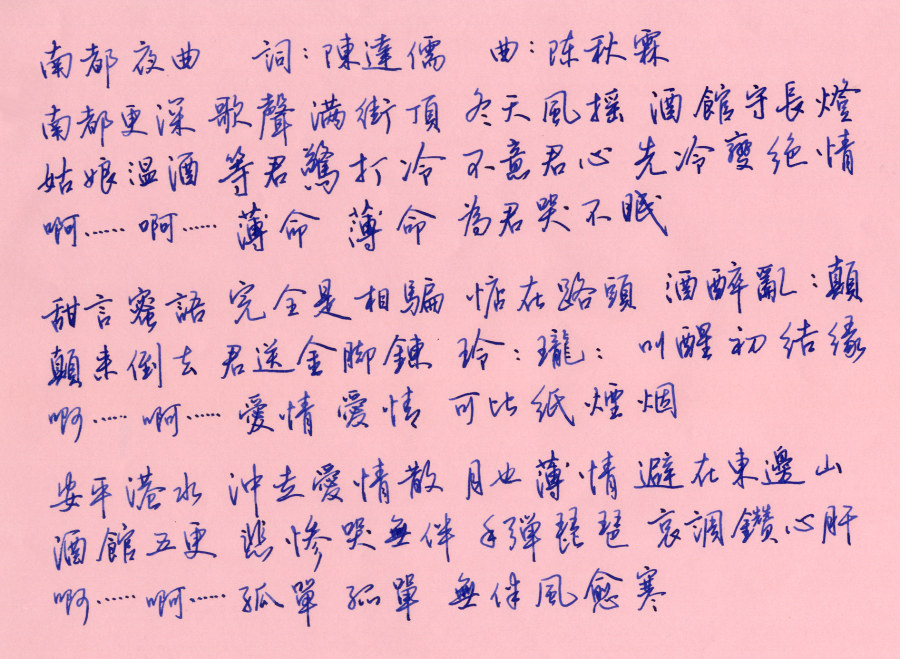 南都夜曲 詞:陳達儒 曲:陈秋霖
南都更深 歌聲满街頂 冬天風摇 酒館守長燈
姑娘温酒 等君驚打冷 不意君心 先冷變絕情
啊…… 啊…… 薄命 薄命 為君哭不眠
甜言蜜語 完全是相騙 惦在路頭 酒醉亂:顛
顛来倒去 君送金脚鍊 玲:瓏: 叫醒初结缘
啊…… 啊…… 愛情 愛情 可比纸煙烟
安平港水 沖走愛情散 月也薄情 避在東邊山
酒館五更 悲惨哭無伴 手弹琵琶 哀調鑽心肝
啊…… 啊…… 孤單 孤單 無伴風愈寒